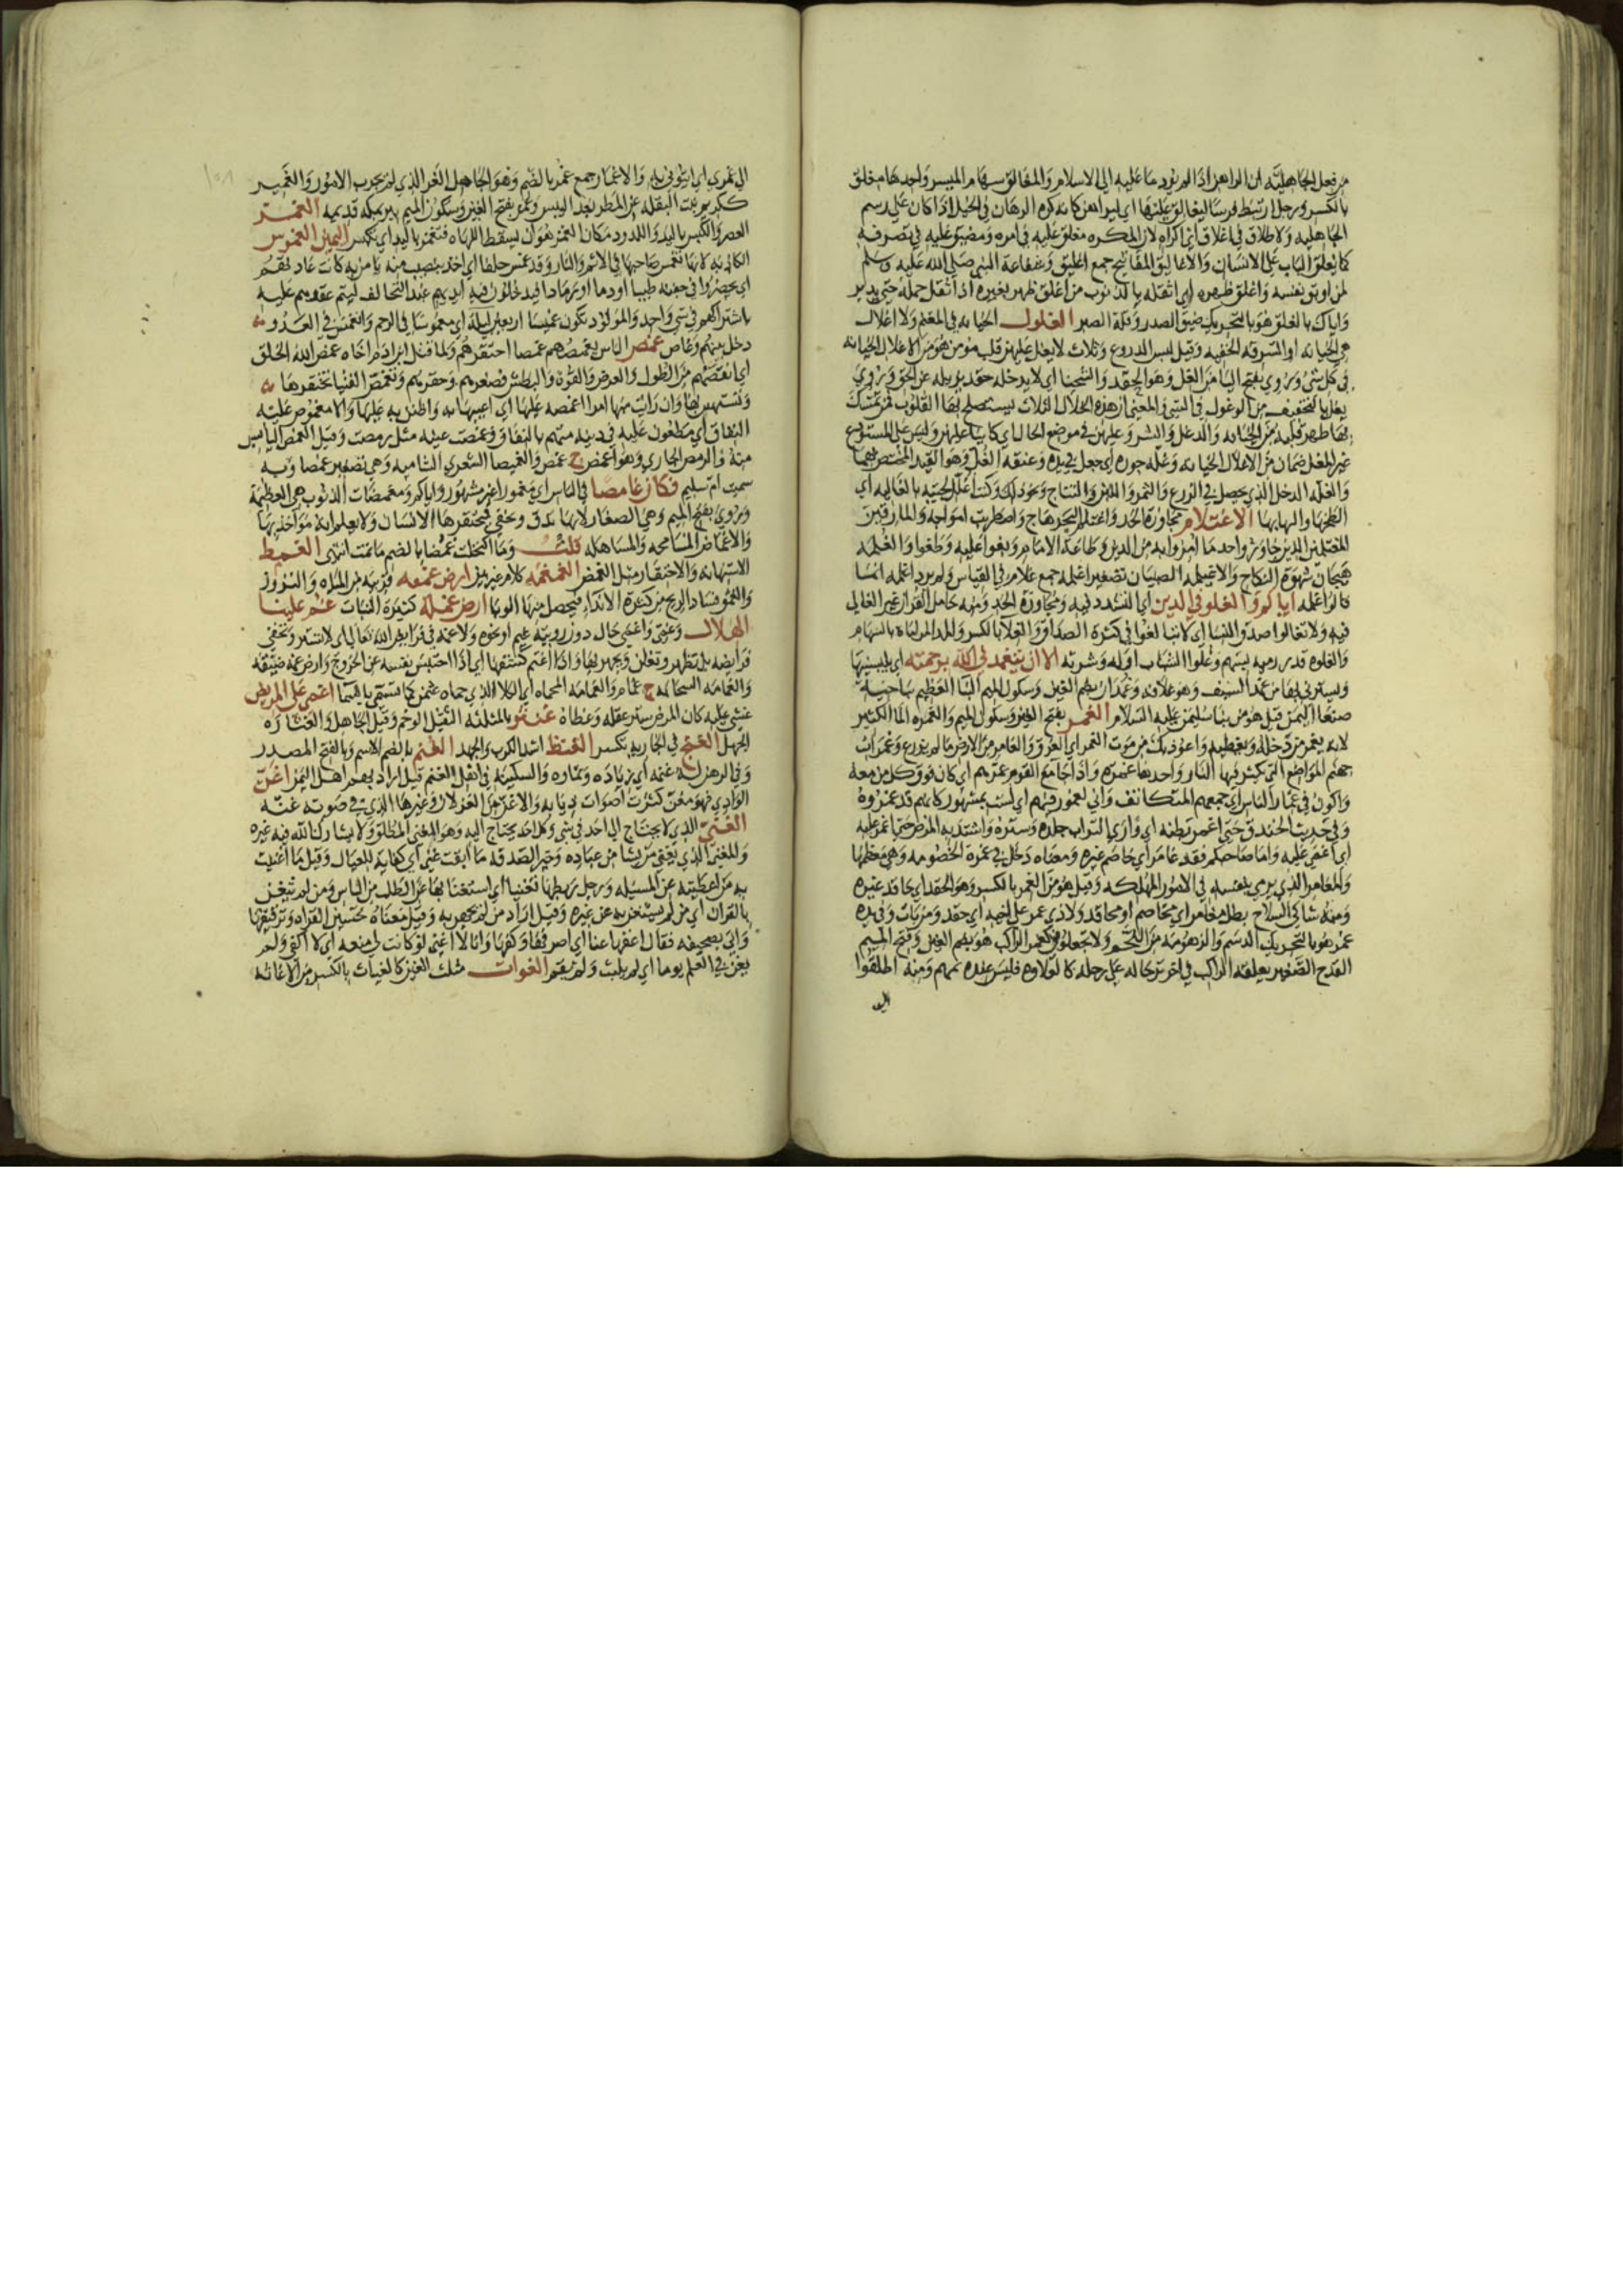 من فعل الجاهلية ان الراهن اذا لم يؤد ما عليه الى الاسلام والمغالق سهام الميسر واحدها مغلق
بالكسر ورجل ارتبط فرسا ليغالق عليها اى ليراهن كانه كره الرهان في الخيل اذا كان على رسم
الجاهلية ولا طلاق في اغلاق اى اكراه لان المكره مغلق عليه في امره ومضيق عليه في تصرفه
كما يغلق الباب على الانسان والاغاليق المفاتيح جمع اغليق وشفاعة النبي صلى الله عليه وسلم
لمن اوبق نفسه واغلق ظهره اى اثقله بالذنوب من اغلق ظهر بعيره اذا اثقل حمله حتى يدبر
واياك والغلق هو بالتحريك ضيق الصدر وقلة الصبر الغلول الخيانه في المغنم ولا اغلال
هي الخيانه او السرقه الخفيه وقيل لبس الدروع وثلاث لا يغل عليهن قلب مومن هو من الاغلال الخيانه
في كل شئ ويروي بفتح اليا من الغل وهو الحقد والشحنا اى لا يدخله حقد يزيله عن الحق ويروي
يغل بالتخفيف من الوغول في الشي والمعنى ان هذه الخلال الثلاث يستصلح بها القلوب فمن تمسك
بها طهر قلبه من الخيانه والدغل والشر وعليهن في موضع الحال اى كاينا عليهن وليس على المستودع
غير المغل ضمان من الاغلال الخيانه وغله جوره اى جعل في يده وعنقه الغل وهو القيد المختص بهما
والغله الدخل الذي يحصل في الزرع والثمر واللبن والنتاج ونحو ذلك وكنت اغلل لحيته بالغاليه اى
الطخها والبها بها الاغتلام مجاوزة الحد واغتلم البحر هاج واضطربت امواجه والمارقين
المغتلمين الذين جاوزوا حد ما امروا به من الدين وطاعة الامام وبغوا عليه وطغوا والغلمه
هيجان شهوة النكاح والاغيلمه الصبيان تصغير اغلمه جمع غلام في القياس ولم يرد اغلمه انما
قالوا غلمه اياكم والغلو في الدين اى التشدد فيه ومجاوزة الحد ومنه حامل القران غير الغالي
فيه ولا تغالوا صدق النسا اى لا تبالغوا في كثرة الصداق والغلا بالكسر والمد المراماة بالسهام
والغلوه قدر رميه بسهم وغلوا الشباب اوله وشرته الا ان يتغمدني الله برحمته اى يلبسنيها
ويسترني بها من غمد السيف وهو غلافه وغمدان بضم الغين وسكون الميم البنا العظيم بناحية
صنعا اليمن قيل هو من بنا سليمن عليه السلام الغمر بفتح الغين وسكون الميم والغمره الما الكثير
لانه يغمر من دخله ويغطيه واعوذ بك من موت الغمر اى الغرق والغامر من الارض ما لم يزرع وغمرات
جهنم المواضع التي يكثر فيها النار واحدتها غمره واذا جا مع القوم غمرهم اى كان فوق كل من معه
واكون في غمار الناس اى جمعهم المتكاثف واني لمغمور فيهم اى لست بمشهور كانهم قد غمروه
وفي حديث الخندق حتى اغمر بطنه اى وارى التراب جلده وستره واشتد به المرض حتى اغمر عليه
اى اغمى عليه واما صاحبكم فقد غامر اى خاصم غيره ومعناه دخل في غمرة الخصومه وهي معظمها
والمغامر الذي يرمي بنفسه في الامور المهلكه وقيل هو من الغمر بالكسر وهو الحقد اى حاقد غيره
ومنه شاكي السلاح بطل مغامر اى مخاصم او محاقد ولا ذي غمر على اخيه اى حقد ومزيات وفي يده
غمر هو بالتحريك الدسم والزهومه من اللحم ولا تجعلوني كغمر الراكب هو بضم الغين وفتح الميم
القدح الصغير يعلقه الراكب في اخر ترحاله على رحله كالعلاوه فليس عنده بمهم ومنه اطلقوا
الى
الى غمري اى ايتوني به والاغمار جمع غمر بالضم وهو الجاهل الغر الذي لم يجرب الامور والغمير
ككريم نبت البقله عن المطر بعد اليبس وغمر بفتح الغين وسكون الميم بير بمكه قديمه الغمز
العصر والكبس باليد واللدود مكان الغمز هو ان يسقط اللهاه فتغمز باليد اى تكبس اليمين الغموس
الكاذبه لانها تغمس صاحبها في الاثم والنار وقد غمس حلفا اى اخذ بنصيب منه يامن به كانت عادتهم
اى يحضروا في جفنه طيبا او دما او رمادا فيدخلون فيه ايديهم عند التحالف ليتم عقدهم عليه
باشتراكهم في شي واحد والمولود تكون غميسا اربعين ليلة اى مغموسا في الرحم وانغمس في العدو
دخل بينهم وغاص غمص الناس يغمصهم غمصا احتقرهم ولما قتل ابن ادم اخاه غمص الله الخلق
اى نقصهم من الطول والعرض والقوة والبطش فصغرهم وحقرهم وتغمص الفتيا تحتقرها
وتستهين بها وان رايت منها امرا اغمصه عليها اى اعيبها به واطعن به عليها والا مغموص عليه
النفاق اى مطعون عليه في دينه متهم بالنفاق وغمصت عينه مثل رمصت وقيل الغمص اليابس
منه والرمص الجاري وهو اغمص ج غمص والغميصا الشعري الشاميه وهي تصغير غمصا وبه
سميت ام سليم فكان غامضا في الناس اى مغمورا غير مشهور واياكم ومغمضات الذنوب هي العظيمة
ويروي بفتح الميم وهي الصغار لانها تدق وتخفى فيحتقرها الانسان ولا يعلم انه مواخذ بها
والاغماض المسامحه والمساهله قلت وما اكتحلت غمضا بالضم ما نمت انتهى الغمط
الاستهانه والاحتقار مثل الغمص الغمغمه كلام غير بين ارض غمقه قريبه من المياه والنزوز
والغمق فساد الريح من كثرة الاندا فيحصل منها الوبا ارض غملة كثيرة النبات غم علينا
الهلال وغمي واغمي حال دون رويته غيم او نحوه ولا غمه في فرايض الله تعالى اى لا تستر وتخفي
فرايضه بل تظهر وتعلن ويجهر بها واذا اغتم كشفها اى اذا احتبس نفسه عن الخروج وارض غمه ضيقه
والغمامه السحابه ج غمام والغمامه المحماه اى الكلا الذي حماه عثمن كما تسمى بالسما اغمى على المريض
غشي عليه كان المرض ستر عقله وغطاه غنثر بالمثلثه الثقيل الوخم وقيل الجاهل والغثارة
الجهل الغنج في الجاريه تكسر الغنظ اشد الكرب والجهد الغنم بالضم الاسم وبالفتح المصدر
وفي الرهن له غنمه اى زيادته ونماوه والسكينه في اهل الغنم قيل اراد بهم اهل اليمن اغن
الوادي فهو مغن كثرت اصوات ذبابه والاغن من الغزلان وغيرها الذي في صوته غنه
الغنى الذي لا يحتاج الى احد في شي وكل احد يحتاج اليه وهو المغنى المطلق ولا يشارك الله فيه غيره
والمغني الذي يغني من يشا من عباده وخير الصدقه ما ابقت غنى اى كفاية للعيال وقيل ما اغنيت
به من اعطيته عن المسيله ورجل ربطها تغنيا اى استغنا بها عن الطلب من الناس ومن لم يتغن
بالقران اى من لم يستغن به عن غيره وقيل اراد من لم يجهر به وقيل معناه تحسين القراه وترقيقها
واتى بصحيفه فقال اغنها عنا اى اصرفها وكفها وانا لا اغني لو كانت لي منعه اى لا اكفي ولم
يغن في العلم يوما اى لم يلبث ولم يقم الغوات مثلث الغين كالغياث بالكسر من الاغاثه